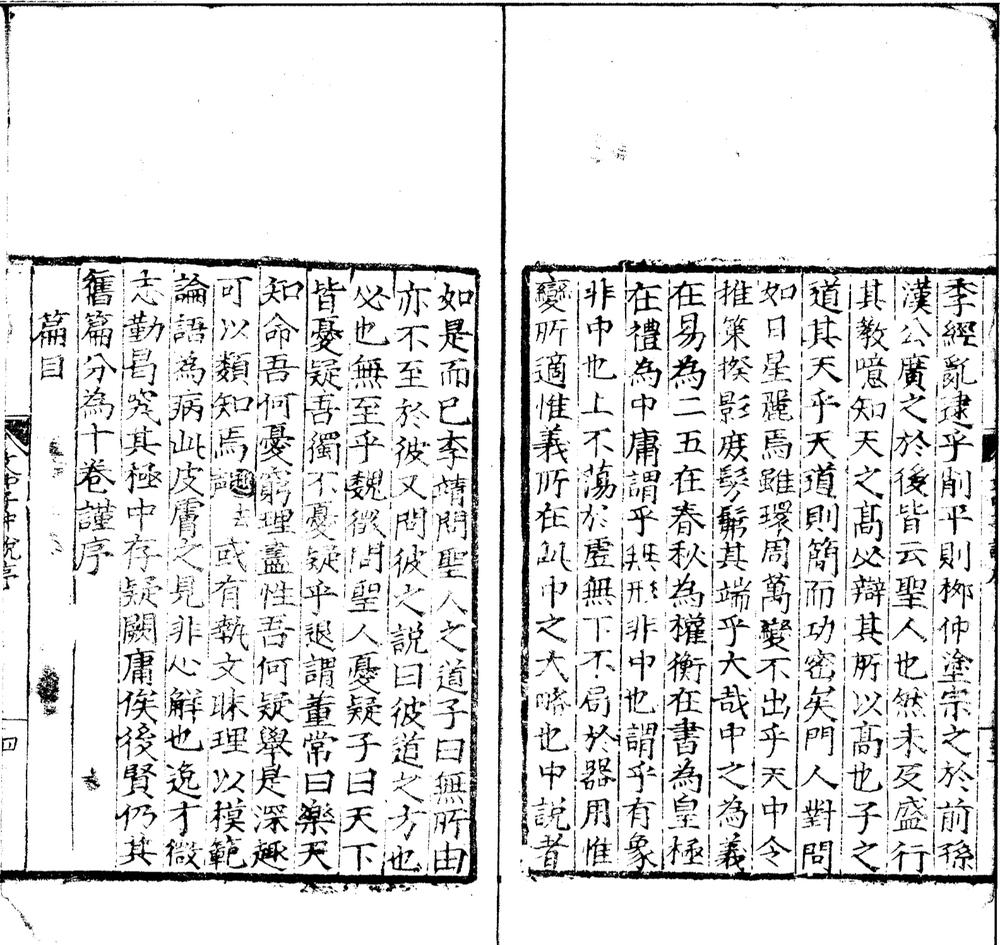 季經亂逮乎削平則栁仲塗宗之於前孫
漢公廣之於後皆云聖人也然未及盛行
其教噫知天之髙必辯其所以髙也子之
道其天乎天道則簡而功密矣門人對問
如日星麗焉雖環周萬變不出乎天中今
推策揆影庻髣髴其端乎大哉中之為義
在易為二五在春秋為權衡在書為皇極
在禮為中庸謂乎無形非中也謂乎有象
非中也上不蕩於虛無下不局於器用惟
變所適惟義所在此中之大略也中說者
如是而已李靖問聖人之道子曰無所由
亦不至於彼又問彼之說曰彼道之方也
必也無至乎魏徵問聖人憂疑子曰天下
皆憂疑吾獨不憂疑乎退謂董常曰樂天
知命吾何憂窮理盡性吾何疑舉是深趣
可以類知焉 或有執文昧理以模範
論語為病此皮膚之見非心解也逸才微
志勤曷究其極中存疑闕庸俟後賢仍其
舊篇分為十卷謹序
篇目
文中子中說序
四